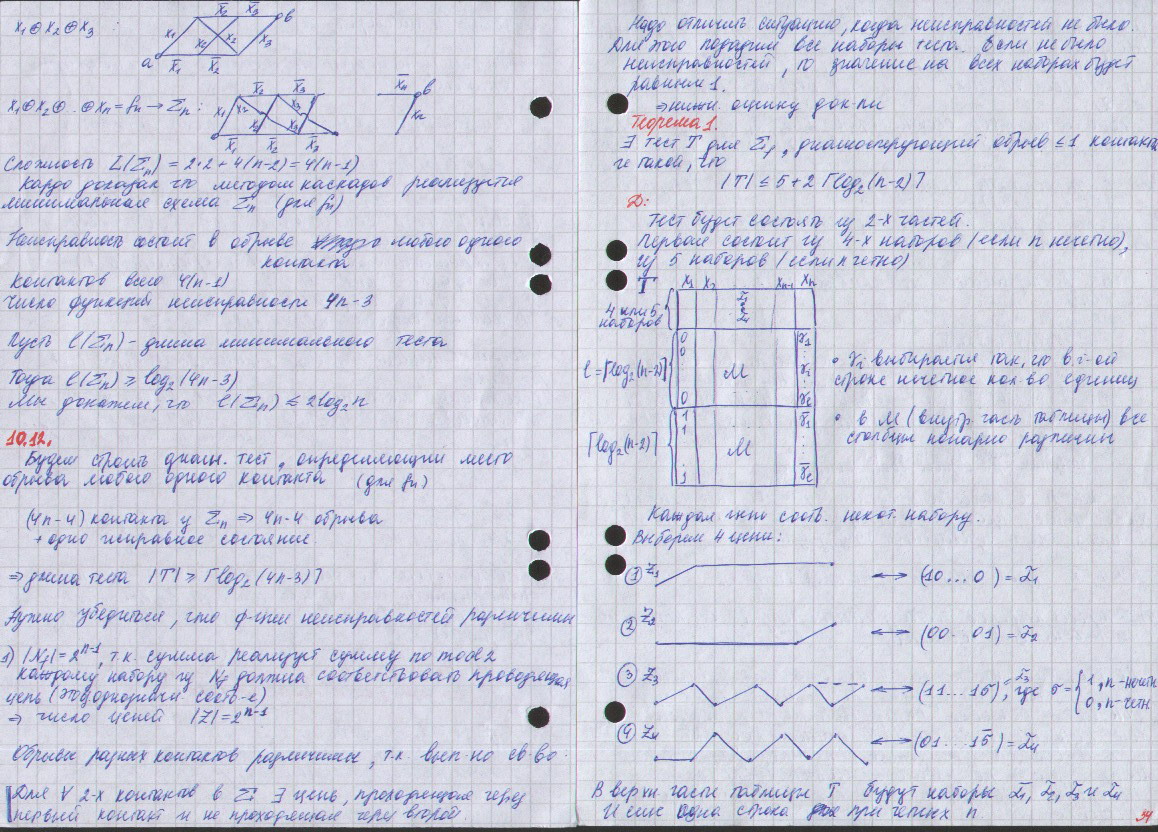 x₁⊕x₂⊕x₃
x̄₂ x̄₃ b
x₁ x₂ x₂ x₃
a x̄₁ x̄₂
x₁⊕x₂⊕ . ⊕xₙ = fₙ → Σₙ :
x̄₂ x̄₃ x̄ₙ b
x₁ x₂ x₂ x₃ x₃ xₙ
x̄₁ x̄₂ x̄₃
Сложность L(Σₙ) = 2·2 + 4(n-2) = 4(n-1)
Кардо доказал что методом каскадов реализуется
минимальная схема Σₙ (для fₙ)
Неисправность состоит в обрыве любого одного
контакта
Контактов всего 4(n-1)
Число функций неисправности 4n-3
Пусть l(Σₙ) - длина минимального теста
Тогда l(Σₙ) ≥ log₂(4n-3)
Мы докажем, что l(Σₙ) ≤ 2log₂n
10.12.
Будем строить диагн. тест, определяющий место
обрыва любого одного контакта (для fₙ)
(4n-4) контакта у Σₙ ⇒ 4n-4 обрыва
+ одно исправное состояние
⇒ длина теста |T| ≥ ⌈log₂(4n-3)⌉
Нужно убедиться, что ф-ции неисправностей различимы
1) |N_f| = 2ⁿ⁻¹, т.к. сумма реализует сумму по mod 2
Каждому набору из N_f должна соответствовать проводящая
цепь (это однозначн. соотв-е)
⇒ число цепей |Z| = 2ⁿ⁻¹
Обрывы разных контактов различимы, т.к. вып-но св-во.
Для ∀ 2-х контактов в Σ ∃ цепь, проходящая через
первый контакт и не проходящая через второй.
Надо отличить ситуацию, когда неисправностей не было.
Для этого подадим все наборы теста. Если не было
неисправностей, то значение на всех наборах будет
равным 1.
⇒ нижн. оценку док-ли
Теорема 1.
∃ тест T для Σ_f, диагностирующий обрыв ≤ 1 контакта
и такой, что
|T| ≤ 5 + 2⌈log₂(n-2)⌉
D:
Тест будет состоять из 2-х частей.
Первая состоит из 4-х наборов (если n нечетно),
из 5 наборов (если n четно)
T x₁ x₂ xₙ₋₁ xₙ
4 или 5
наборов
l = ⌈log₂(n-2)⌉ 0 0 0 M γ₁ γᵢ γₗ
• γᵢ выбирается так, что в i-ой
строке нечетное кол-во единиц
⌈log₂(n-2)⌉ 1 1 1 M γ̄₁ γ̄ₗ
• в M (внутр. часть таблицы) все
столбцы попарно различны
Каждая цепь соотв. некот. набору.
Выберем 4 цепи:
① Z₁ ⟷ (10...0) = α̃₁
② Z₂ ⟷ (00.. 01) = α̃₂
③ Z₃ ⟷ (11...1σ) = α̃₃, где σ = { 1, n-нечетн
0, n-четн
④ Z₄ ⟷ (01...1σ̄) = α̃₄
В верхн части таблицы T будут наборы α̃₁, α̃₂, α̃₃ и α̃₄
И еще одна строка при четных n.